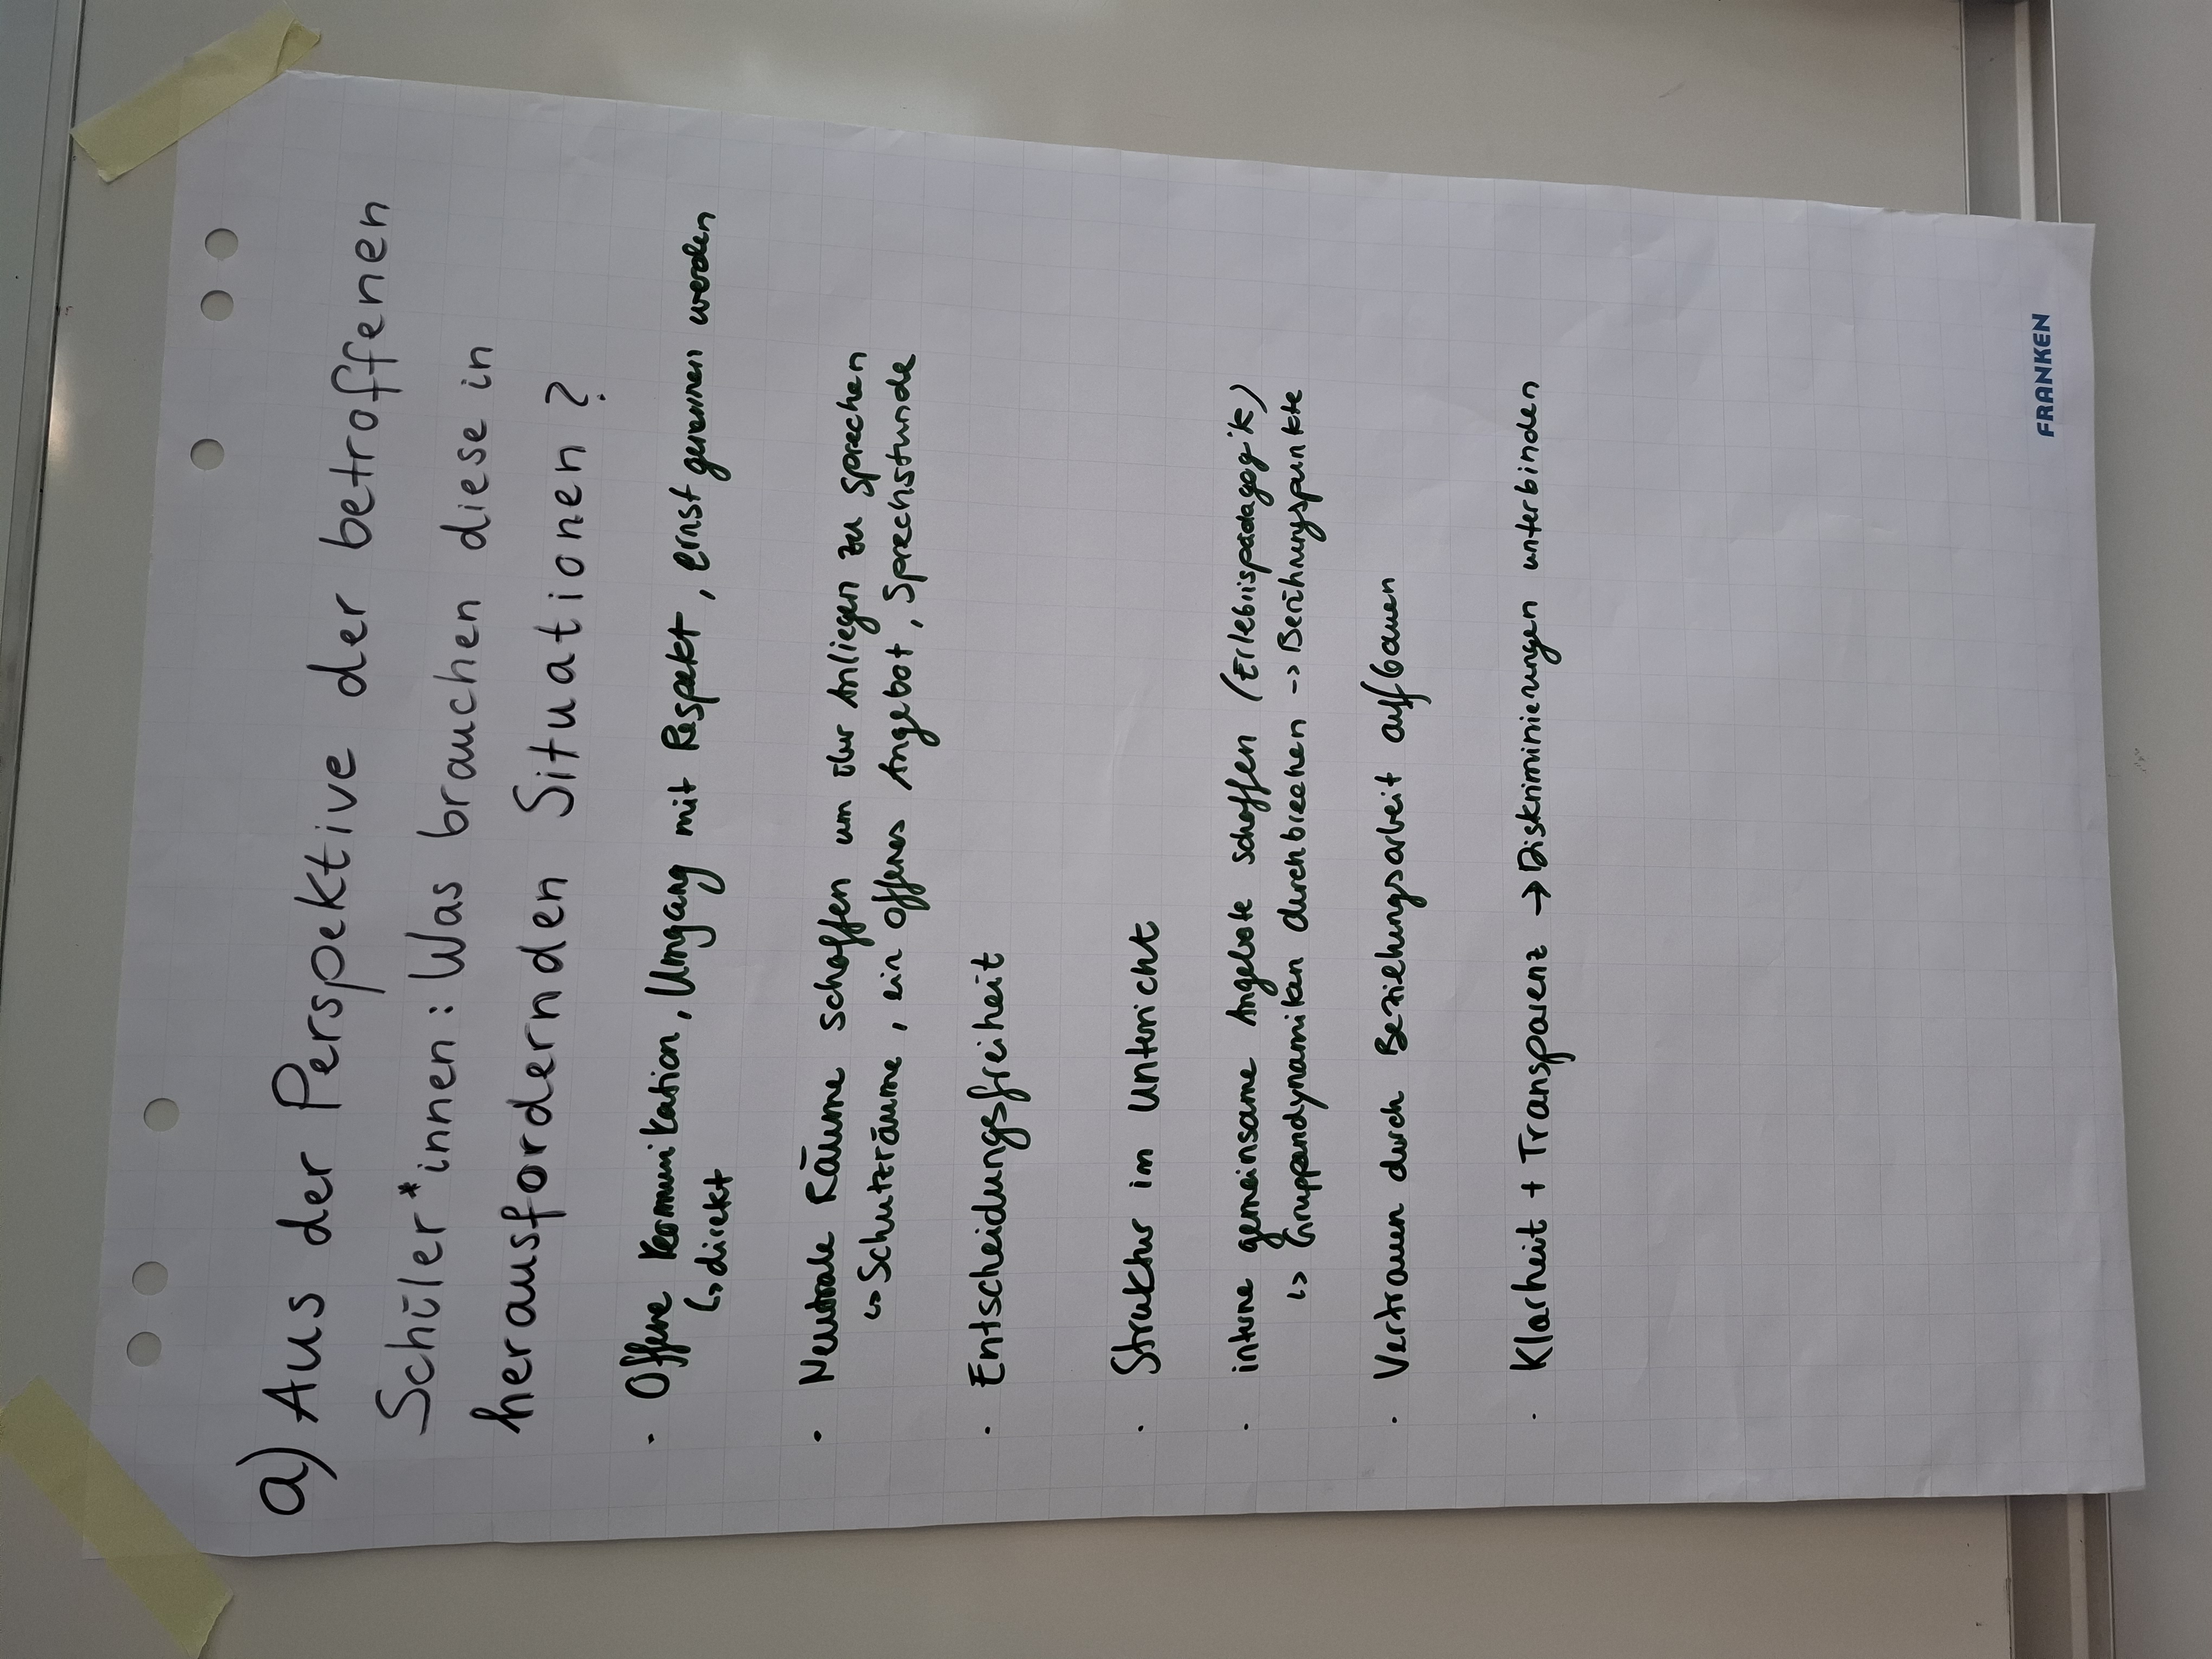 a) Aus der Perspektive der betroffenen
Schüler*innen: Was brauchen diese in
herausfordernden Situationen?
· Offene Kommunikation, Umgang mit Respekt, ernst genommen werden
↳ direkt
· Neutrale Räume schaffen um über Anliegen zu sprechen
↳ Schutzräume, ein offenes Angebot, Sprechstunde
· Entscheidungsfreiheit
· Struktur im Unterricht
· interne gemeinsame Angebote schaffen (Erlebnispädagogik)
↳ Gruppendynamiken durchbrechen -> Berührungspunkte
· Vertrauen durch Beziehungsarbeit aufbauen
· Klarheit + Transparenz → Diskriminierungen unterbinden
FRANKEN